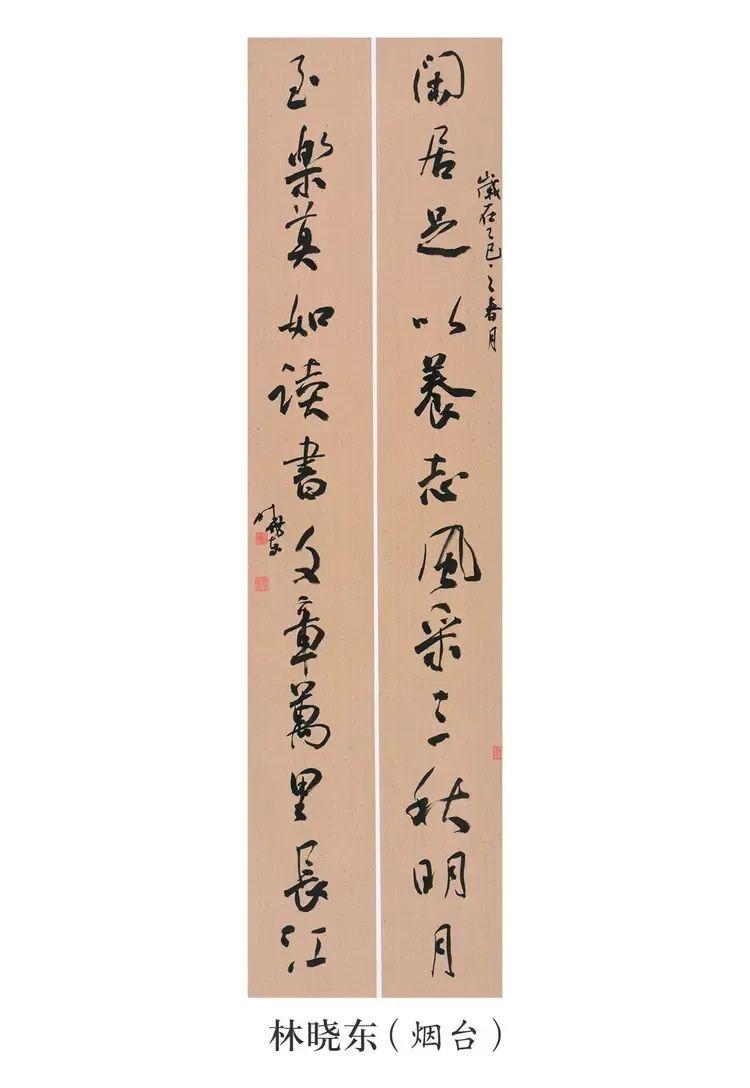 閑居足以養志風采三秋明月
歲在乙巳之春月
至樂莫如讀書文章萬里長江
林曉东
林晓东（烟台）